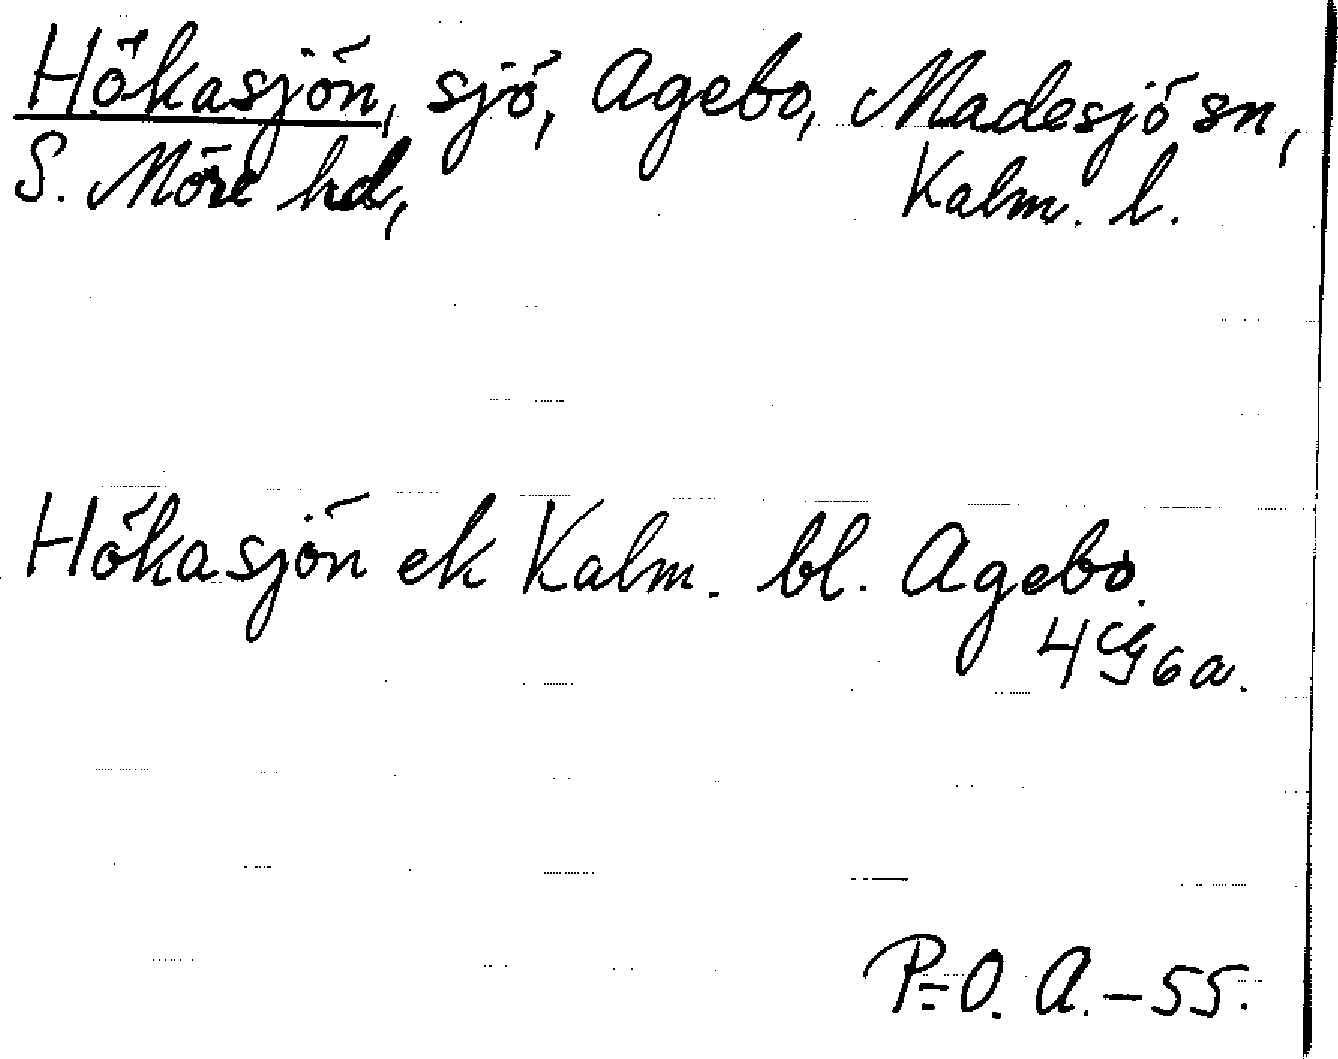 Hökasjön, sjö, Agebo, Madesjö sn,
S. Möre hd, Kalm. l.
Hökasjön ek Kalm. bl. Agebo.
4G6a.
P.-O. A. - 55.